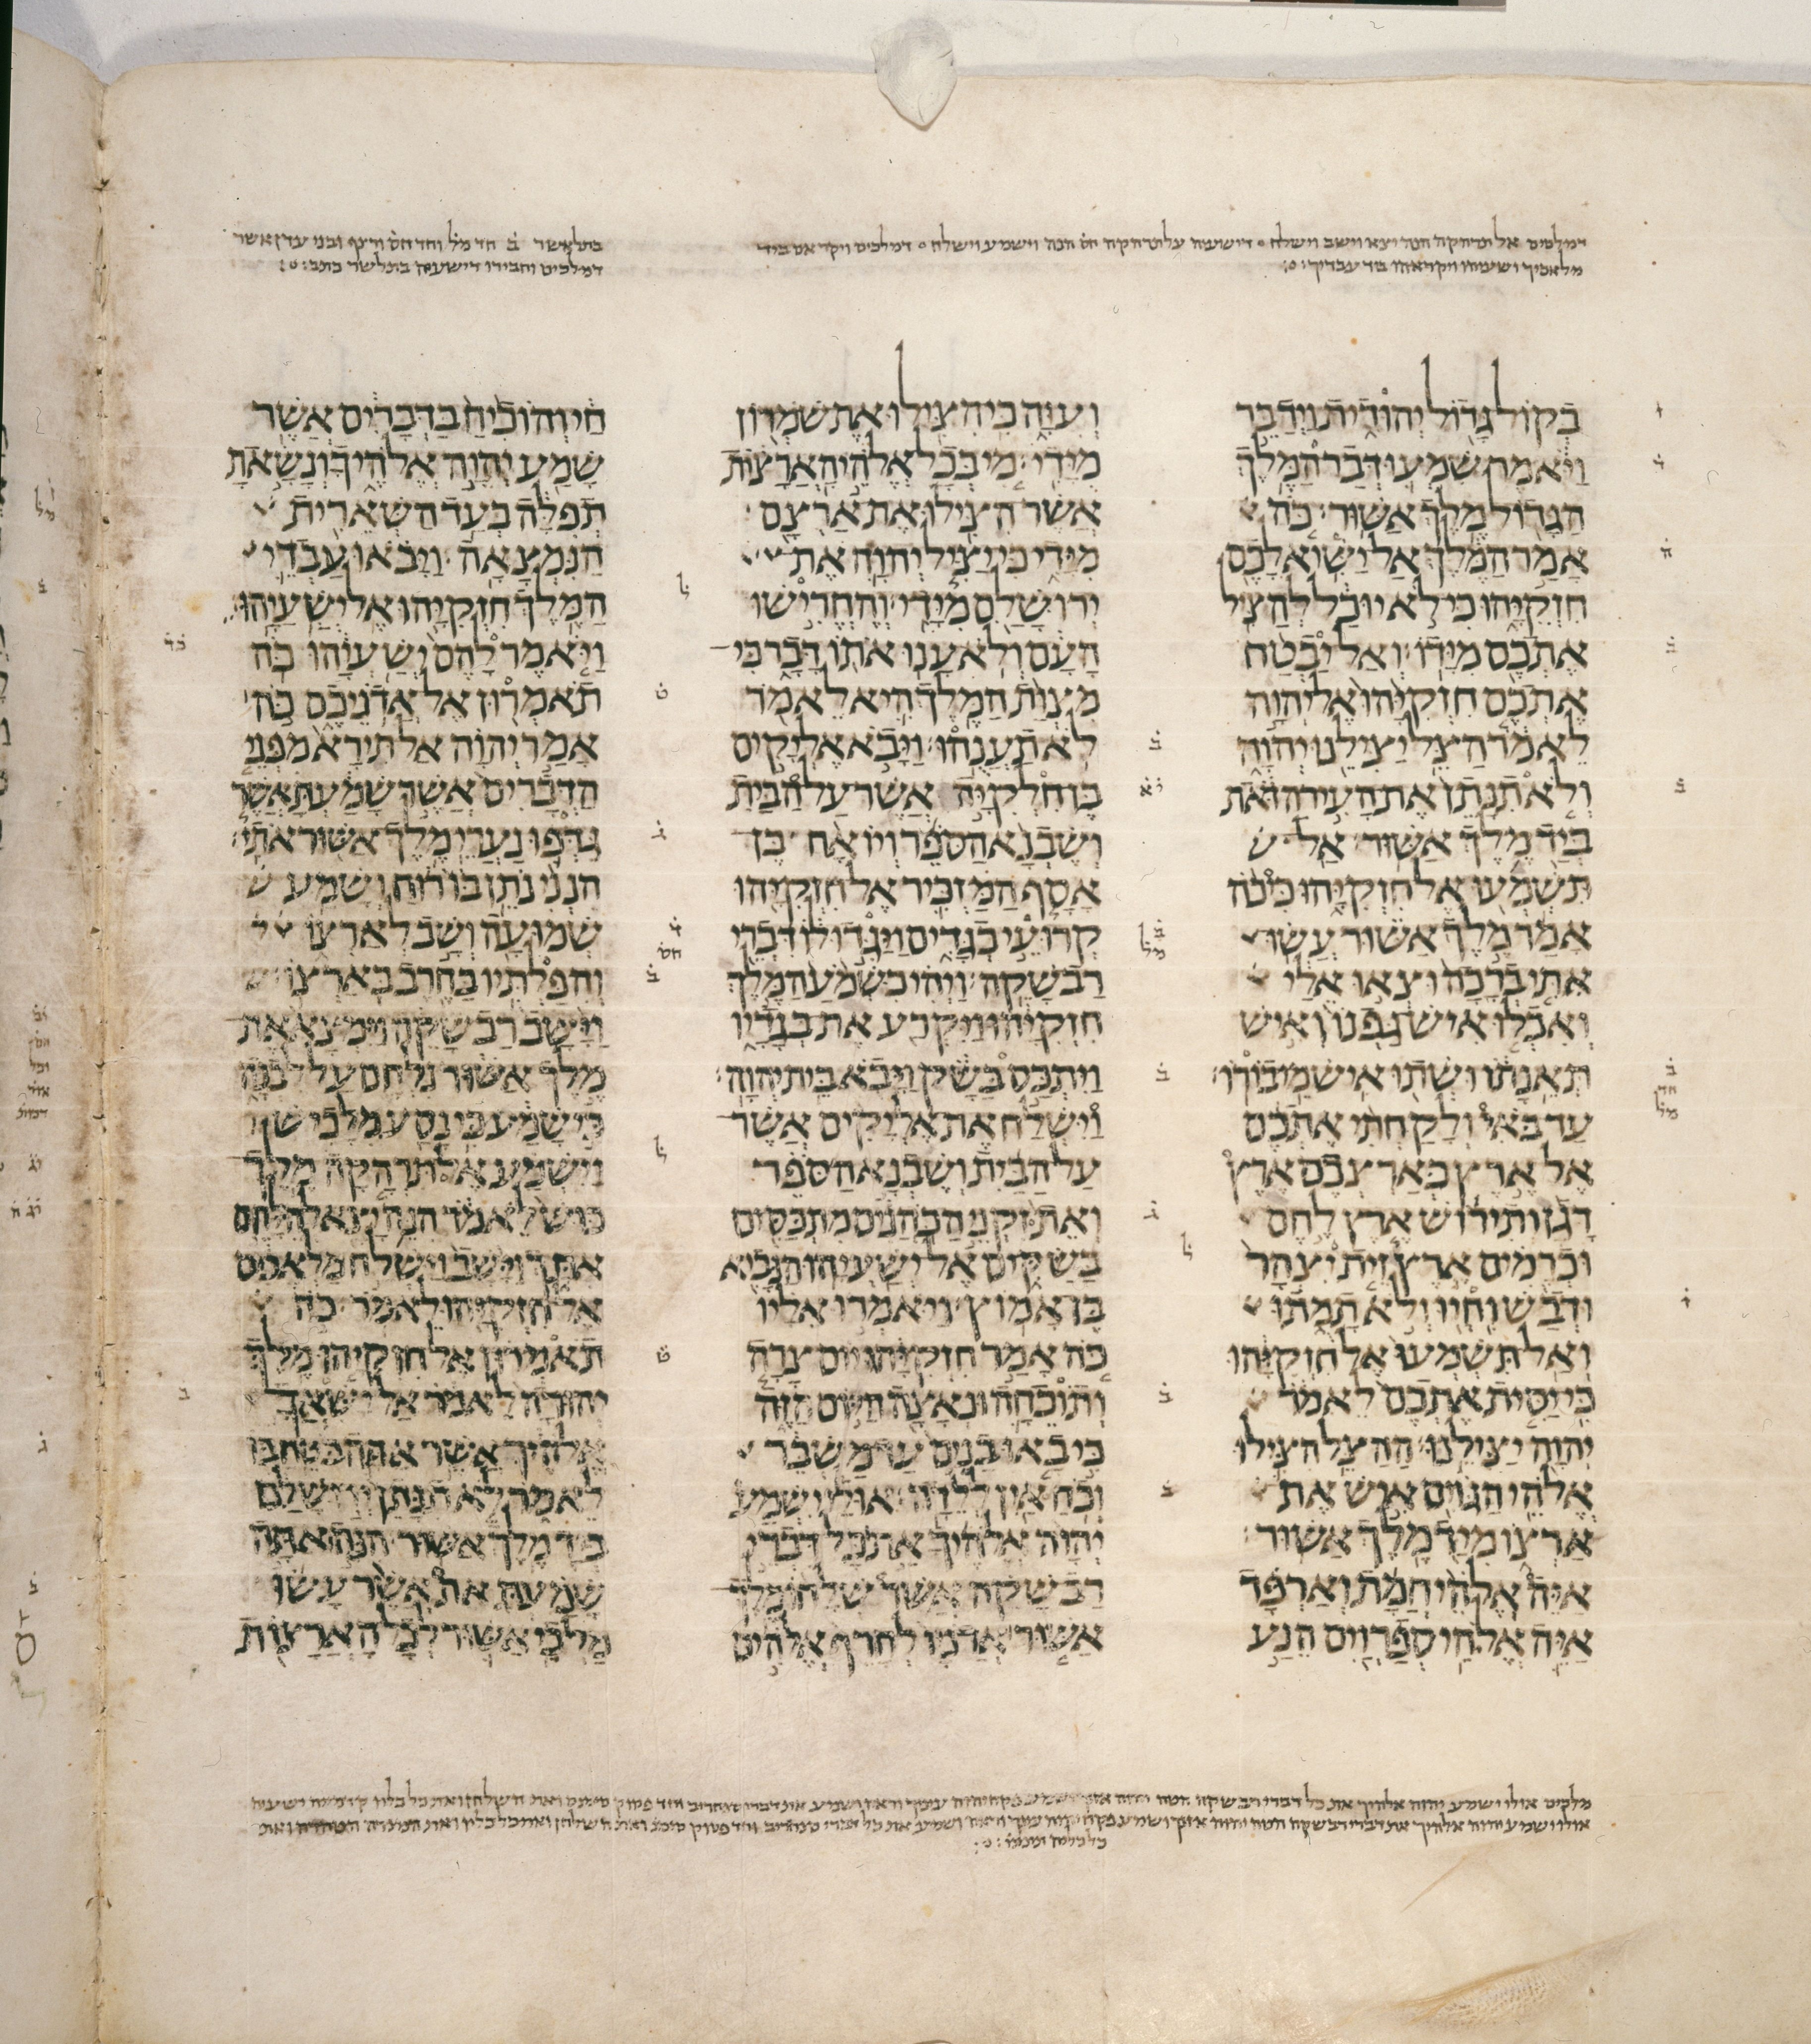 דמלכים אל תרהקה הנה יצא וישב וישלח ׄ דישעיה על תרהקה חס הנה וישמע וישלח ׄ דמלכים
מלאכיך
בתלאשר ב חד מל וחד חס ורצף ובני עדן אשר
דמלכים וחבירו דישעיה בתלשר כתב
בקול גדול יהודית וידבר
ויאמר שמעו דבר המלך
הגדול מלך אשור כה
אמר המלך אל ישיא לכם
חזקיהו כי לא יוכל להציל
אתכם מידו ואל יבטח
אתכם חזקיהו אל יהוה
לאמר הצל יצילנו יהוה
ולא תנתן את העיר הזאת
ביד מלך אשור אל
תשמעו אל חזקיהו כי כה
אמר מלך אשור עשו
אתי ברכה וצאו אלי
ואכלו איש גפנו ואיש
תאנתו ושתו איש מי בורו
עד באי ולקחתי אתכם
אל ארץ כארצכם ארץ
דגן ותירוש ארץ לחם
וכרמים ארץ זית יצהר
ודבש וחיו ולא תמתו
ואל תשמעו אל חזקיהו
כי יסית אתכם לאמר
יהוה יצילנו ההצל הצילו
אלהי הגוים איש את
ארצו מיד מלך אשור
איה אלהי חמת וארפד
איה אלהי ספרוים הנע
ועוה כי הצילו את שמרון
מידי מי בכל אלהי הארצות
אשר הצילו את ארצם
מידי כי יציל יהוה את
ירושלם מידי והחרישו
העם ולא ענו אתו דבר כי
מצות המלך היא לאמר
לא תענהו ויבא אליקים
בן חלקיה אשר על הבית
ושבנא הספר ויואח בן
אסף המזכיר אל חזקיהו
קרועי בגדים ויגדו לו דברי
רבשקה ויהי כשמע המלך
חזקיהו ויקרע את בגדיו
ויתכס בשק ויבא בית יהוה
וישלח את אליקים אשר
על הבית ושבנא הספר
ואת זקני הכהנים מתכסים
בשקים אל ישעיהו הנביא
בן אמוץ ויאמרו אליו
כה אמר חזקיהו יום צרה
ותוכחה ונאצה היום הזה
כי באו בנים עד משבר
וכח אין ללדה אולי ישמע
יהוה אלהיך את כל דברי
רבשקה אשר שלחו מלך
אשור אדניו לחרף אלהים
חי והוכיח בדברים אשר
שמע יהוה אלהיך ונשאת
תפלה בעד השארית
הנמצאה ויבאו עבדי
המלך חזקיהו אל ישעיהו
ויאמר להם ישעיהו כה
תאמרון אל אדניכם כה
אמר יהוה אל תירא מפני
הדברים אשר שמעת אשר
גדפו נערי מלך אשור אתי
הנני נתן בו רוח ושמע
שמועה ושב לארצו
והפלתיו בחרב בארצו
וישב רבשקה וימצא את
מלך אשור נלחם על לבנה
כי שמע כי נסע מלכיש
וישמע אל תרהקה מלך
כוש לאמר הנה יצא להלחם
אתך וישב וישלח מלאכים
אל חזקיהו לאמר כה
תאמרון אל חזקיהו מלך
יהודה לאמר אל ישאך
אלהיך אשר אתה בטח בו
לאמר לא תנתן ירושלם
ביד מלך אשור הנה אתה
שמעת את אשר עשו
מלכי אשור לכל הארצות
מלכים אולי ישמע יהוה אלהיך את כל דברי רבשקה הטה יהוה אזנך
אולי ישמע יהוה אלהיך את דברי רבשקה הטה יהוה אזנך ושמע פקח